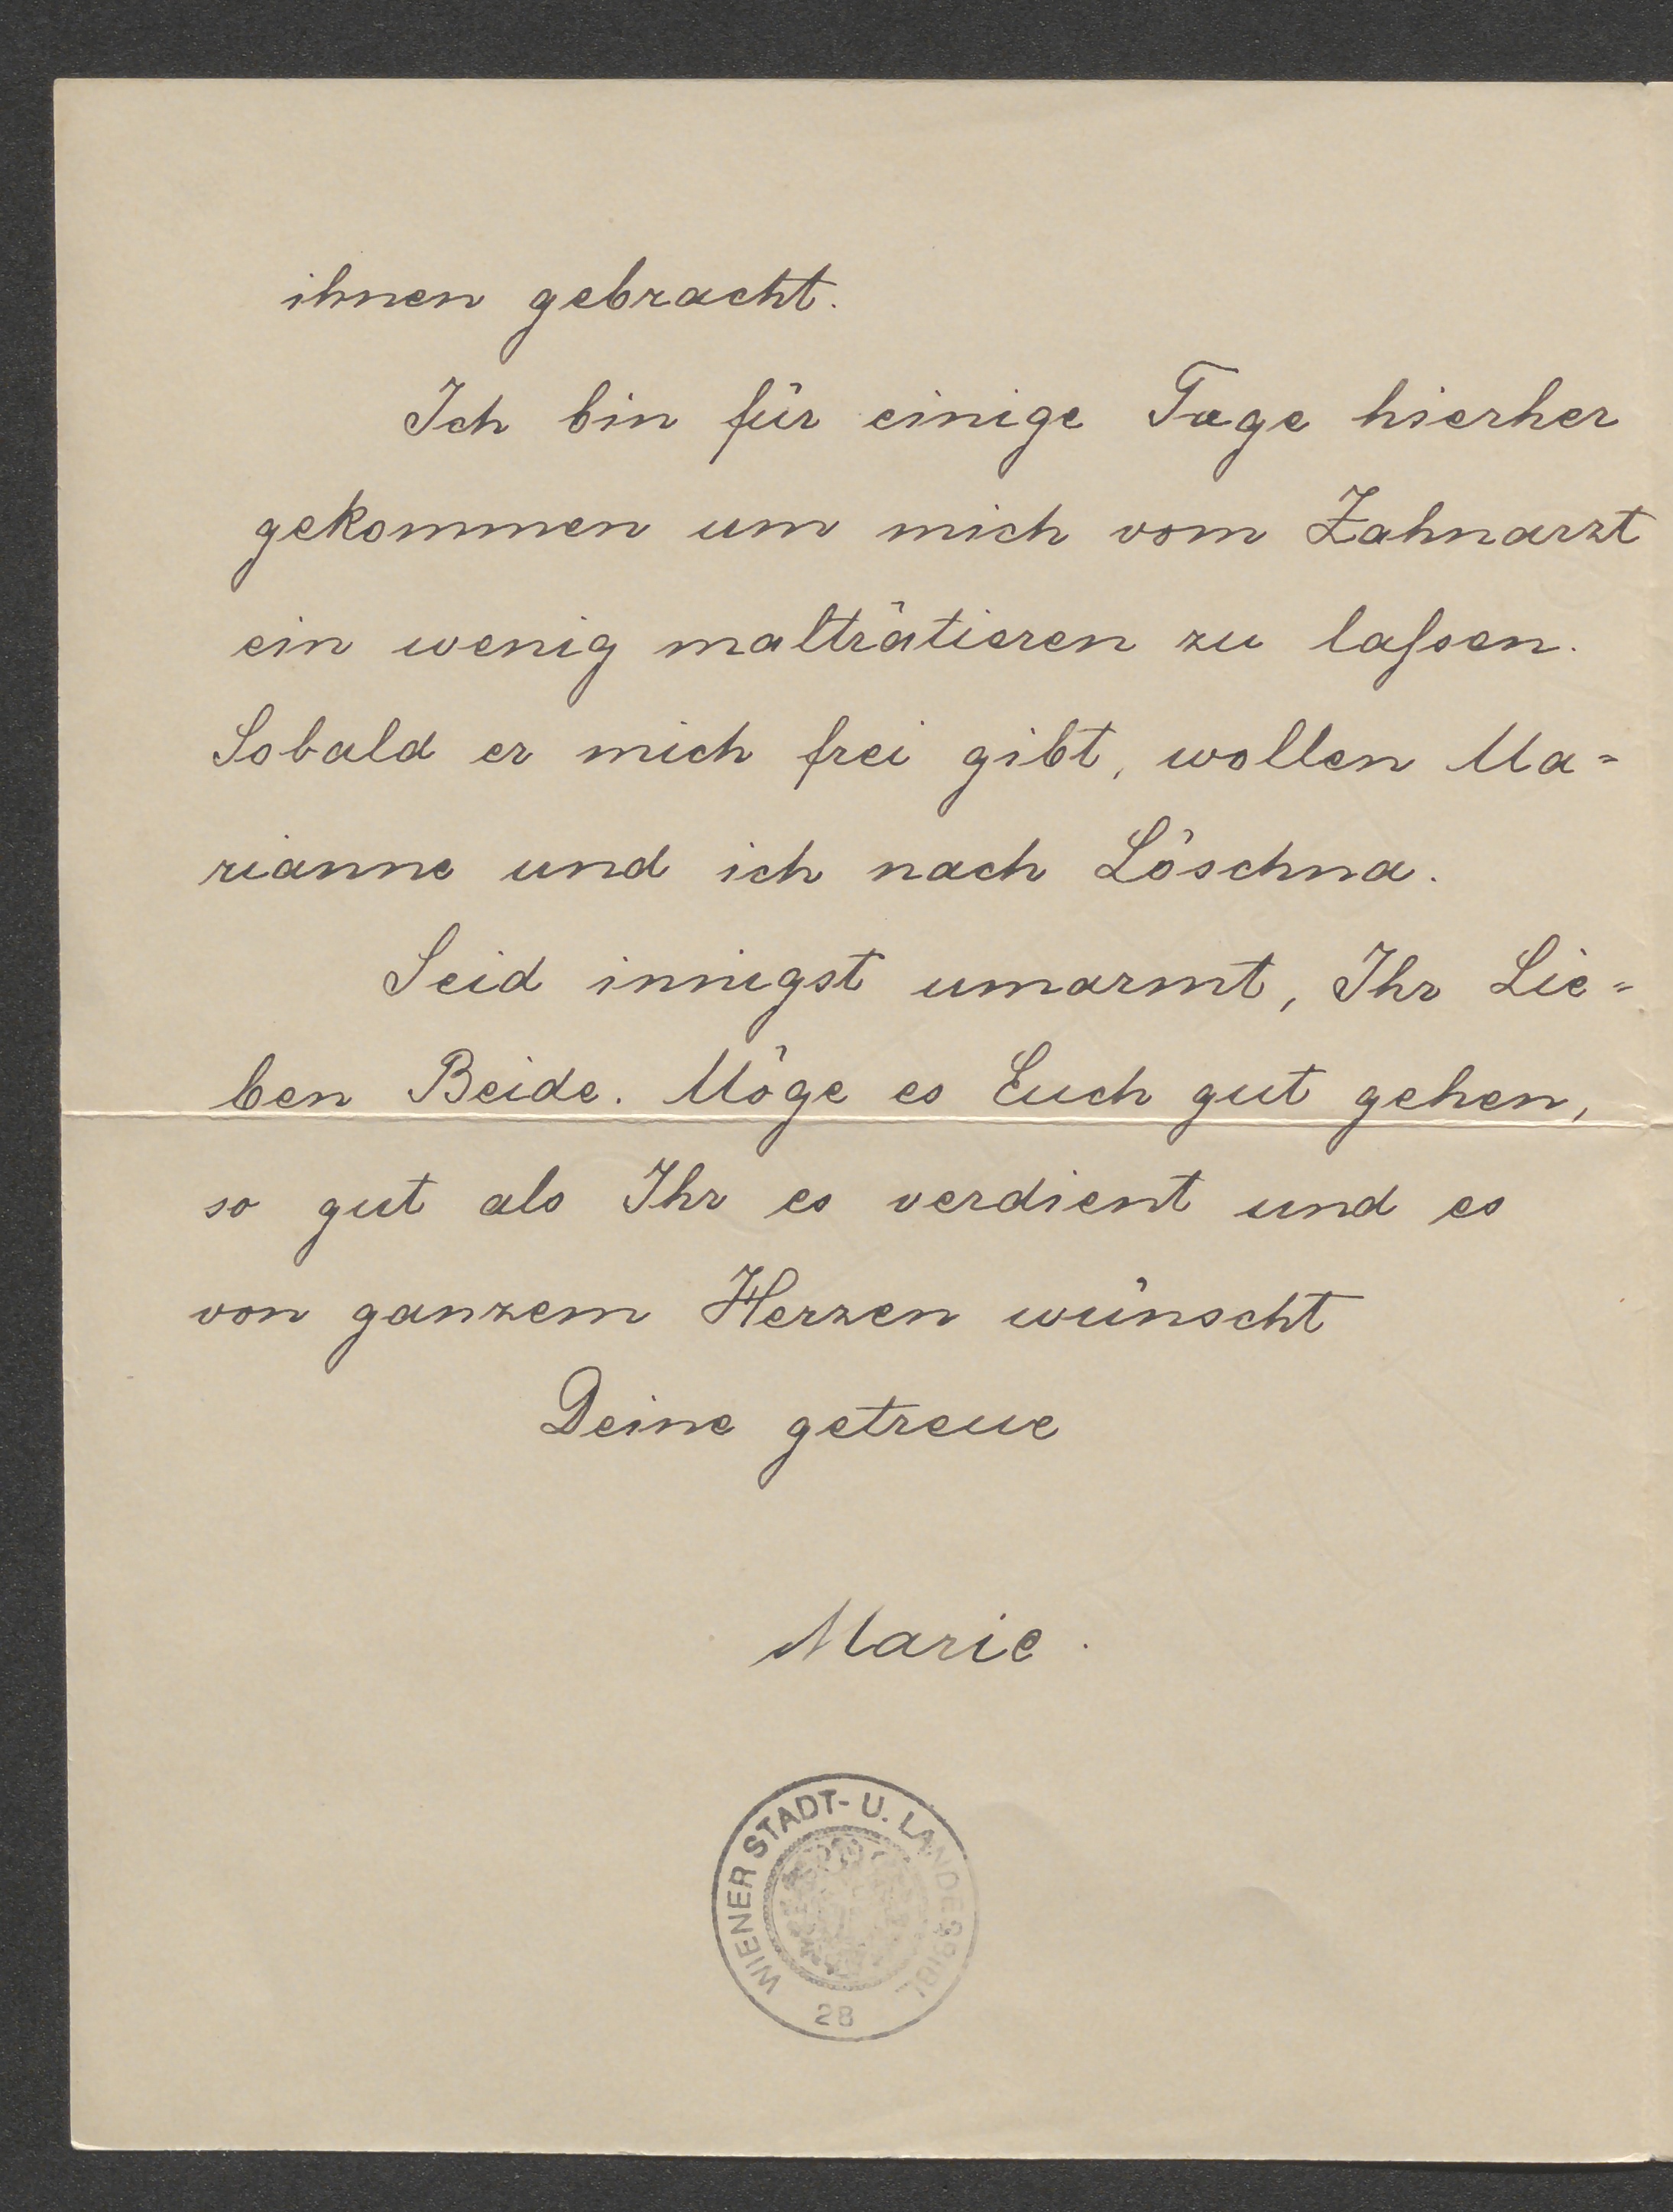 ihnen gebracht.
Ich bin für einige Tage hierher
gekommen um mich vom Zahnarzt
ein wenig malträtieren zu laſsen.
Sobald er mich frei gibt, wollen Ma=
rianne und ich nach Löschna.
Seid innigst umarmt, Ihr Lie=
ben Beide. Möge es Euch gut gehen,
so gut als Ihr es verdient und es
von ganzem Herzen wünscht
Deine getreue
Marie.
WIENER STADT- U. LANDESBIBL.
28